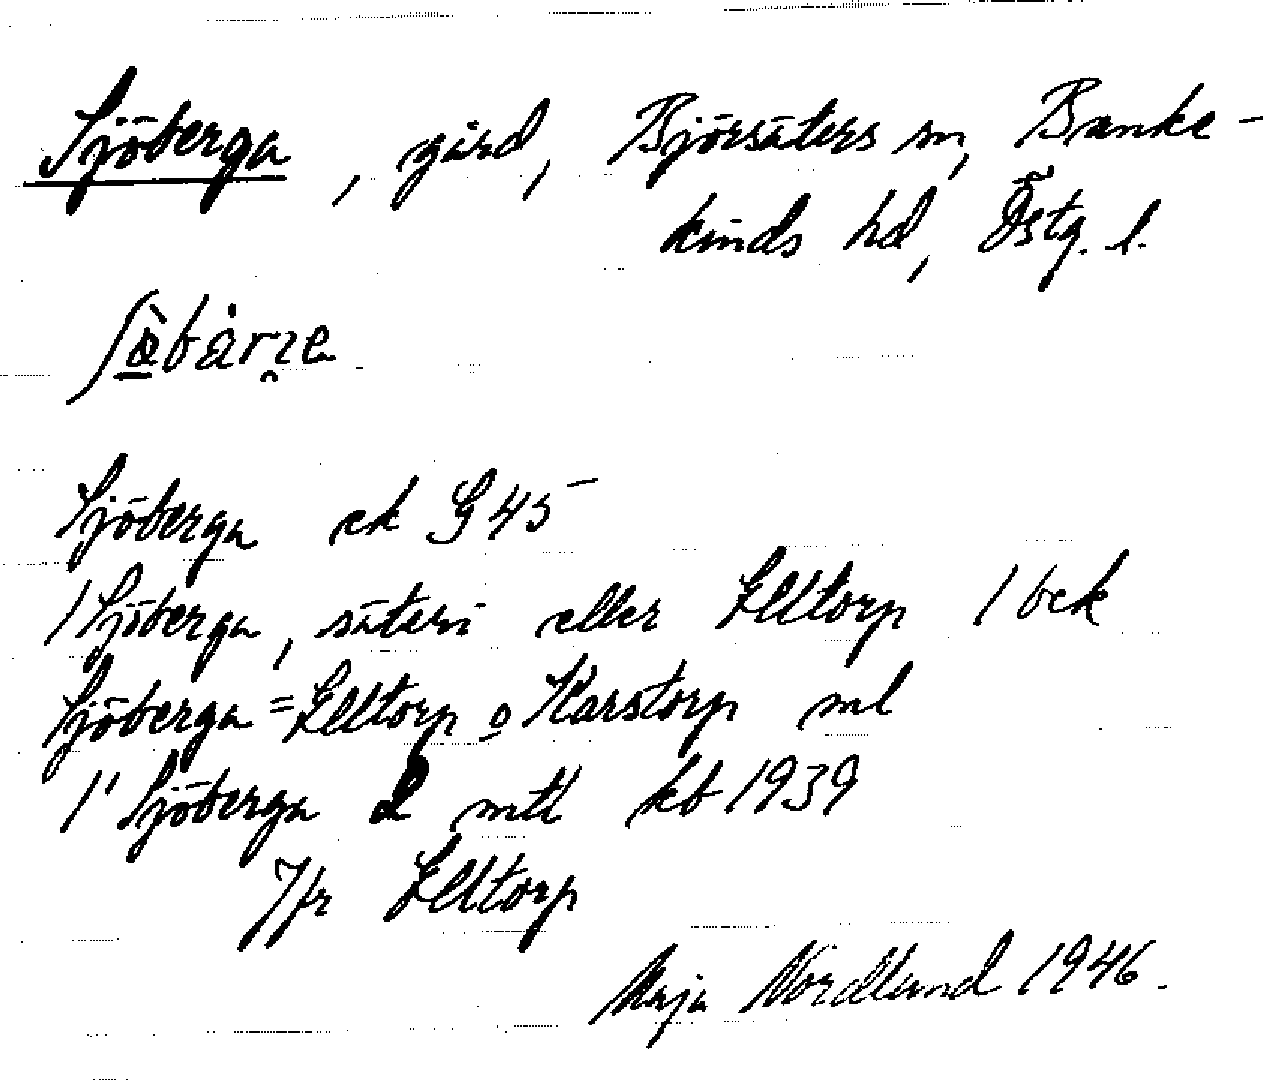 Sjöberga, gård, Björsäters sn, Banke-
kinds hd, Östg. l.
Sjöberga ek G 45
/Sjöberga, säteri eller Elltorp / bek
Sjöberga = Elltorp o Karstorp ml
/' Sjöberga 2 mtl kb 1939
Jfr Elltorp
Maja Nordlund 1946.